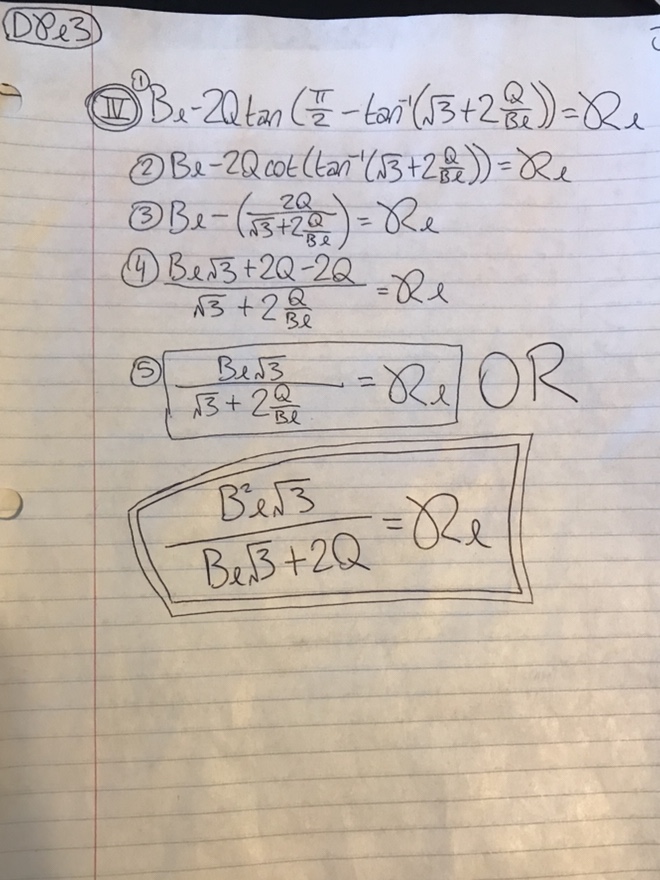 DRe3
IV ① Be-2Qtan(π/2-tan⁻¹(√3+2Q/Be))=Re
② Be-2Qcot(tan⁻¹(√3+2Q/Be))=Re
③ Be-(2Q/(√3+2Q/Be))=Re
④ (Be√3+2Q-2Q)/(√3+2Q/Be)=Re
⑤ Be√3/(√3+2Q/Be)=Re OR
B²e√3/(Be√3+2Q)=Re